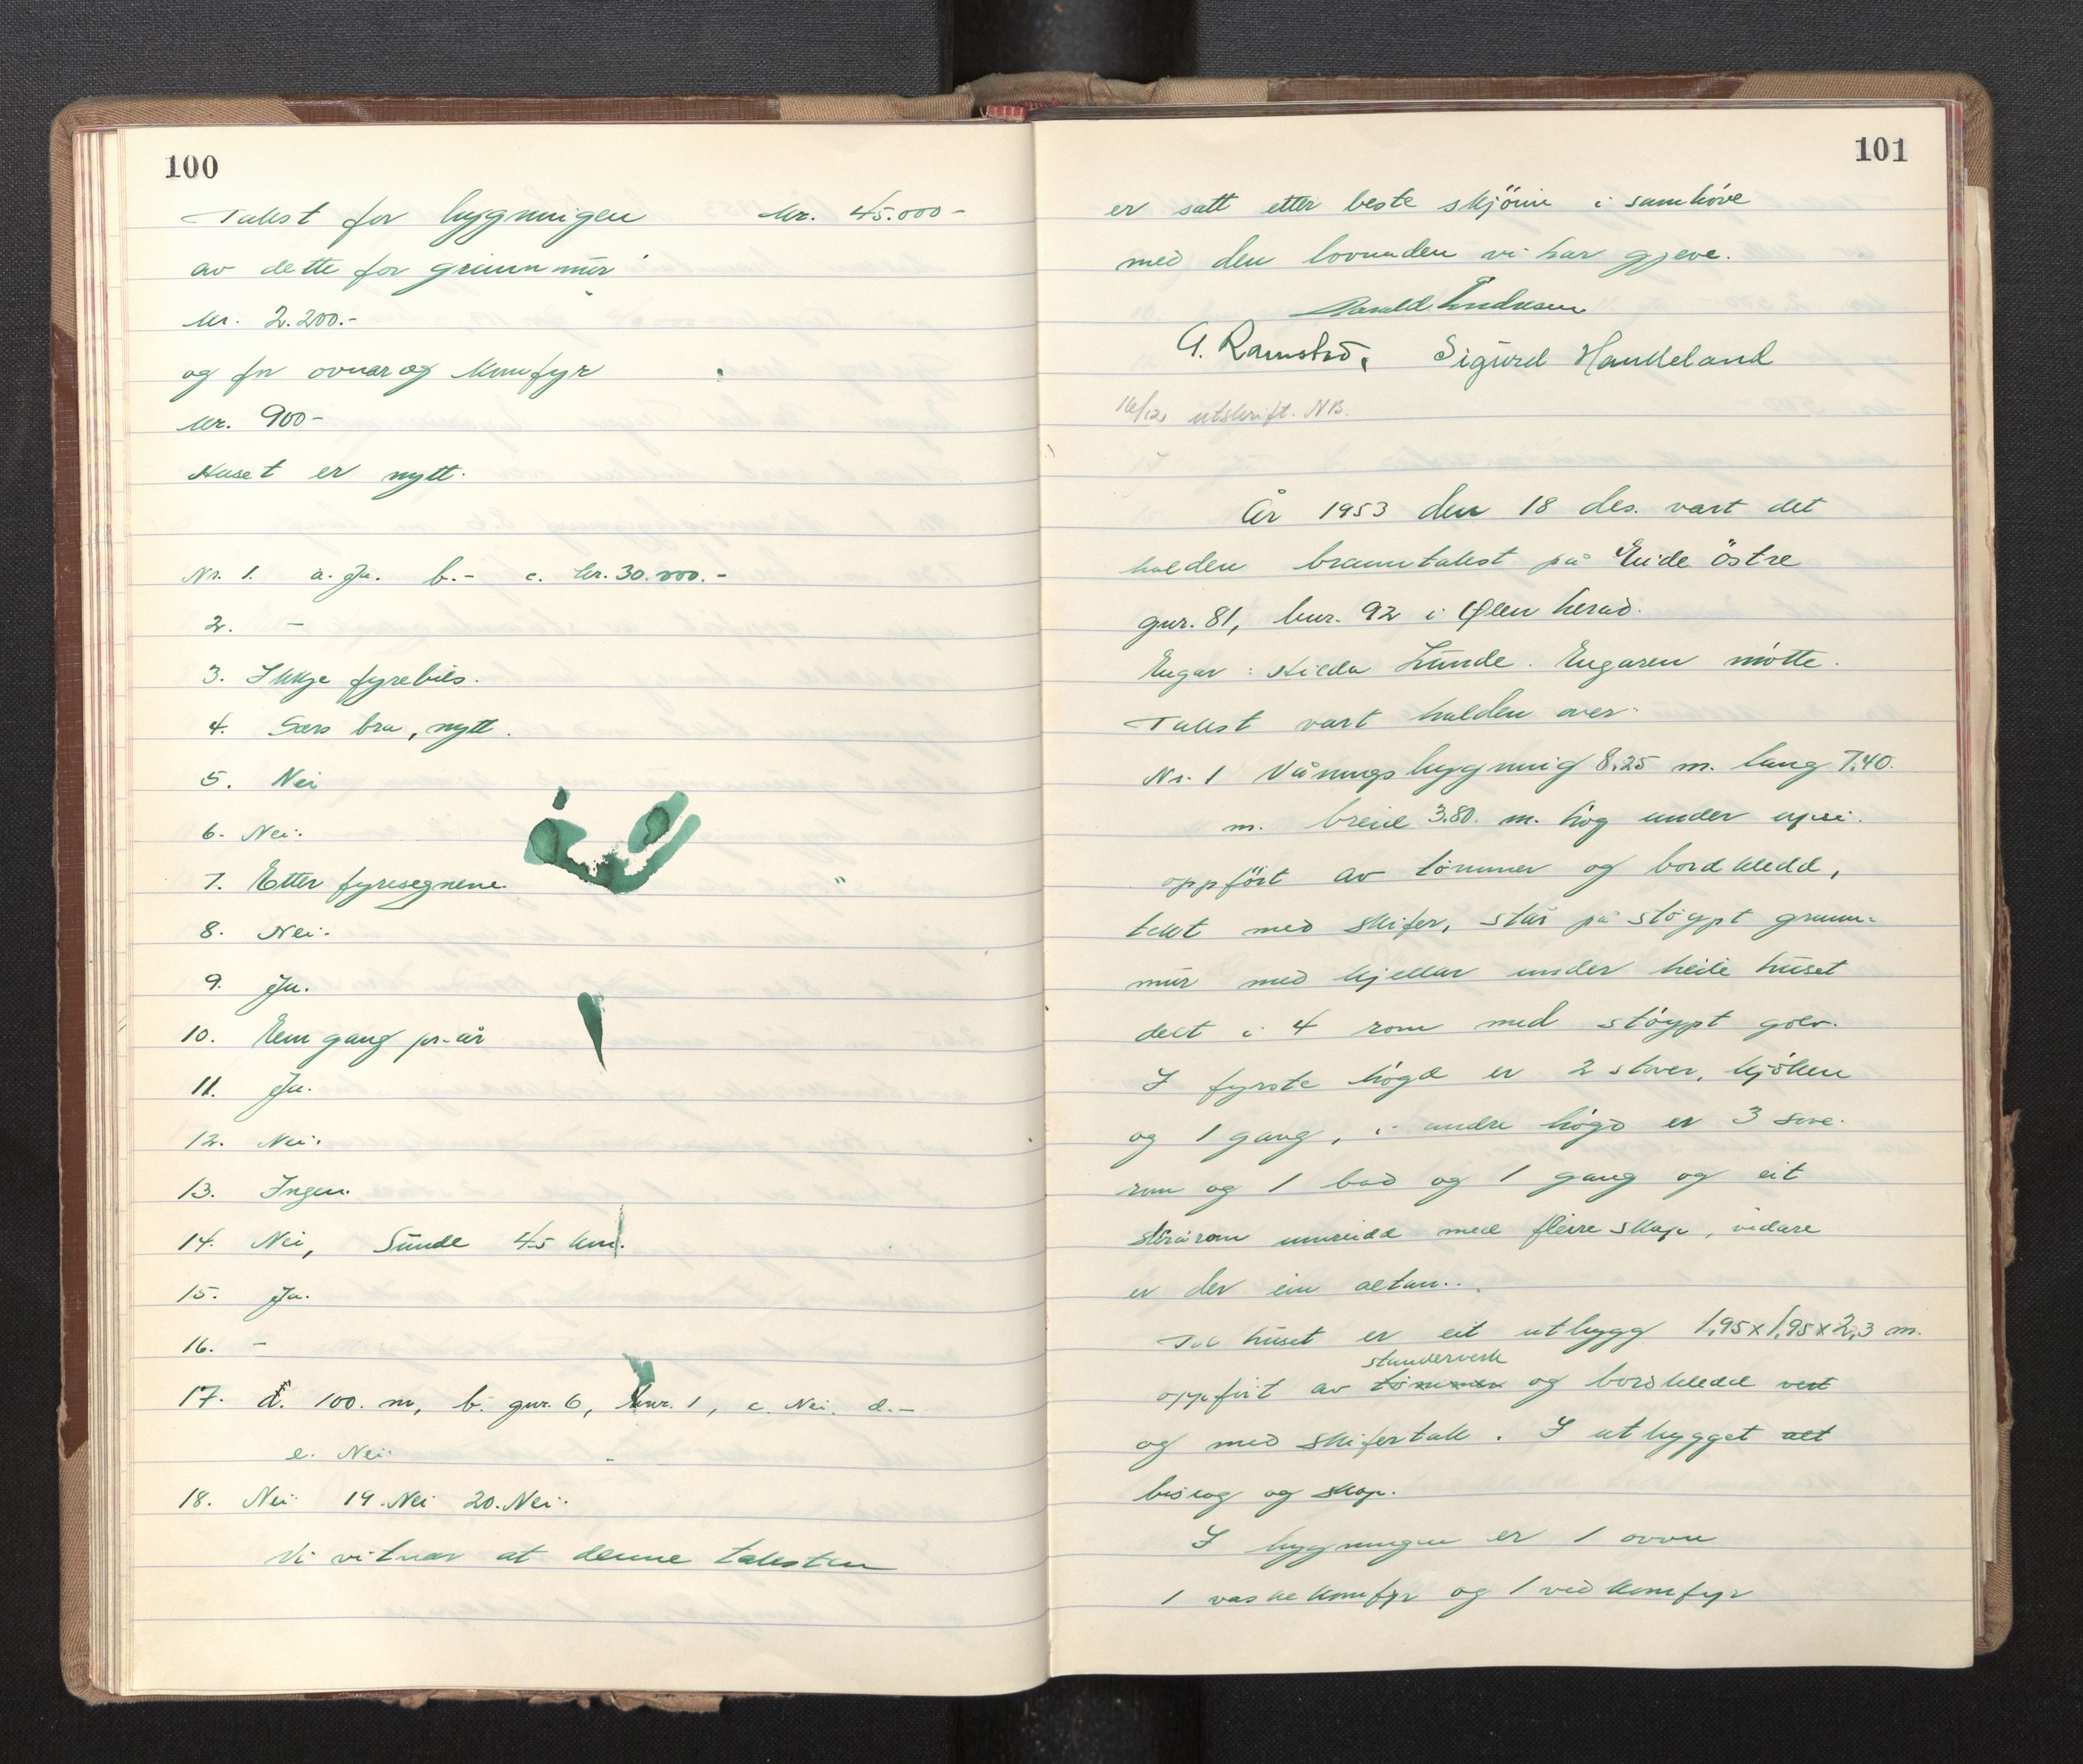 100
Takst for bygningen kr. 45.000-
av dette for grunnmur
kr. 2.200.-
og for ovnar og komfyr
kr. 900-
Huset er nytt.
Nr. 1. a. Ja. b. - c. kr. 30.000.-
2. -
3. Ikkje fyrebils.
4. Særs bra, nytt.
5. Nei
6. Nei.
7. Etter fyresegnene.
8. Nei.
9. Ja.
10. Ein gang pr. år
11. Ja.
12. Nei.
13. Ingen.
14. Nei, Sunde 45 km.
15. Ja.
16. -
17. a. 100. m, b. gnr. 6, bnr. 1, c. Nei. d. -
e. Nei.
18. Nei 19. Nei 20. Nei.
Vi vitnar at denne taksten
101
er satt etter beste skjönn i samhöve
med den lovnaden vi har gjeve.
Sigurd Handeland
16/12 utskrift. NB.
År 1953 den 18 des. vart det
halden branntakst på Eide Östre
gnr. 81, bnr. 92 i Ølen herad.
Eigar: Hilda Lunde. Eigaren møtte.
Takst vart halden over
Nr. 1 Våningsbygning 8,25 m. lang 7,40.
m. breid 3,80. m. høg under upsi.
oppført av tømmer og bordkledd,
tekt med skifer, står på støypt grunn-
mur med kjellar under heile huset
delt i 4 rom med støypt golv.
I fyrste høgd er 2 stover, kjøken
og 1 gang, i andre høgd er 3 sove-
rom og 1 bad og 1 gang og eit
stràrom innreidd med fleire skap, vidare
er der ein altan.
Til huset er eit utbygg 1,95 x 1,95 x 2,3 m.
standerverk
oppfört av tömmer og bordkledd
og med skifertak. I utbygget
bislag og skap.
I bygningen er 1 ovn
1 vaskekomfyr og 1 vedkomfyr